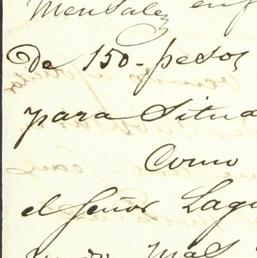 Mensales en
de 150 - pesos
para situa
Como
el Señor Lagu
mas